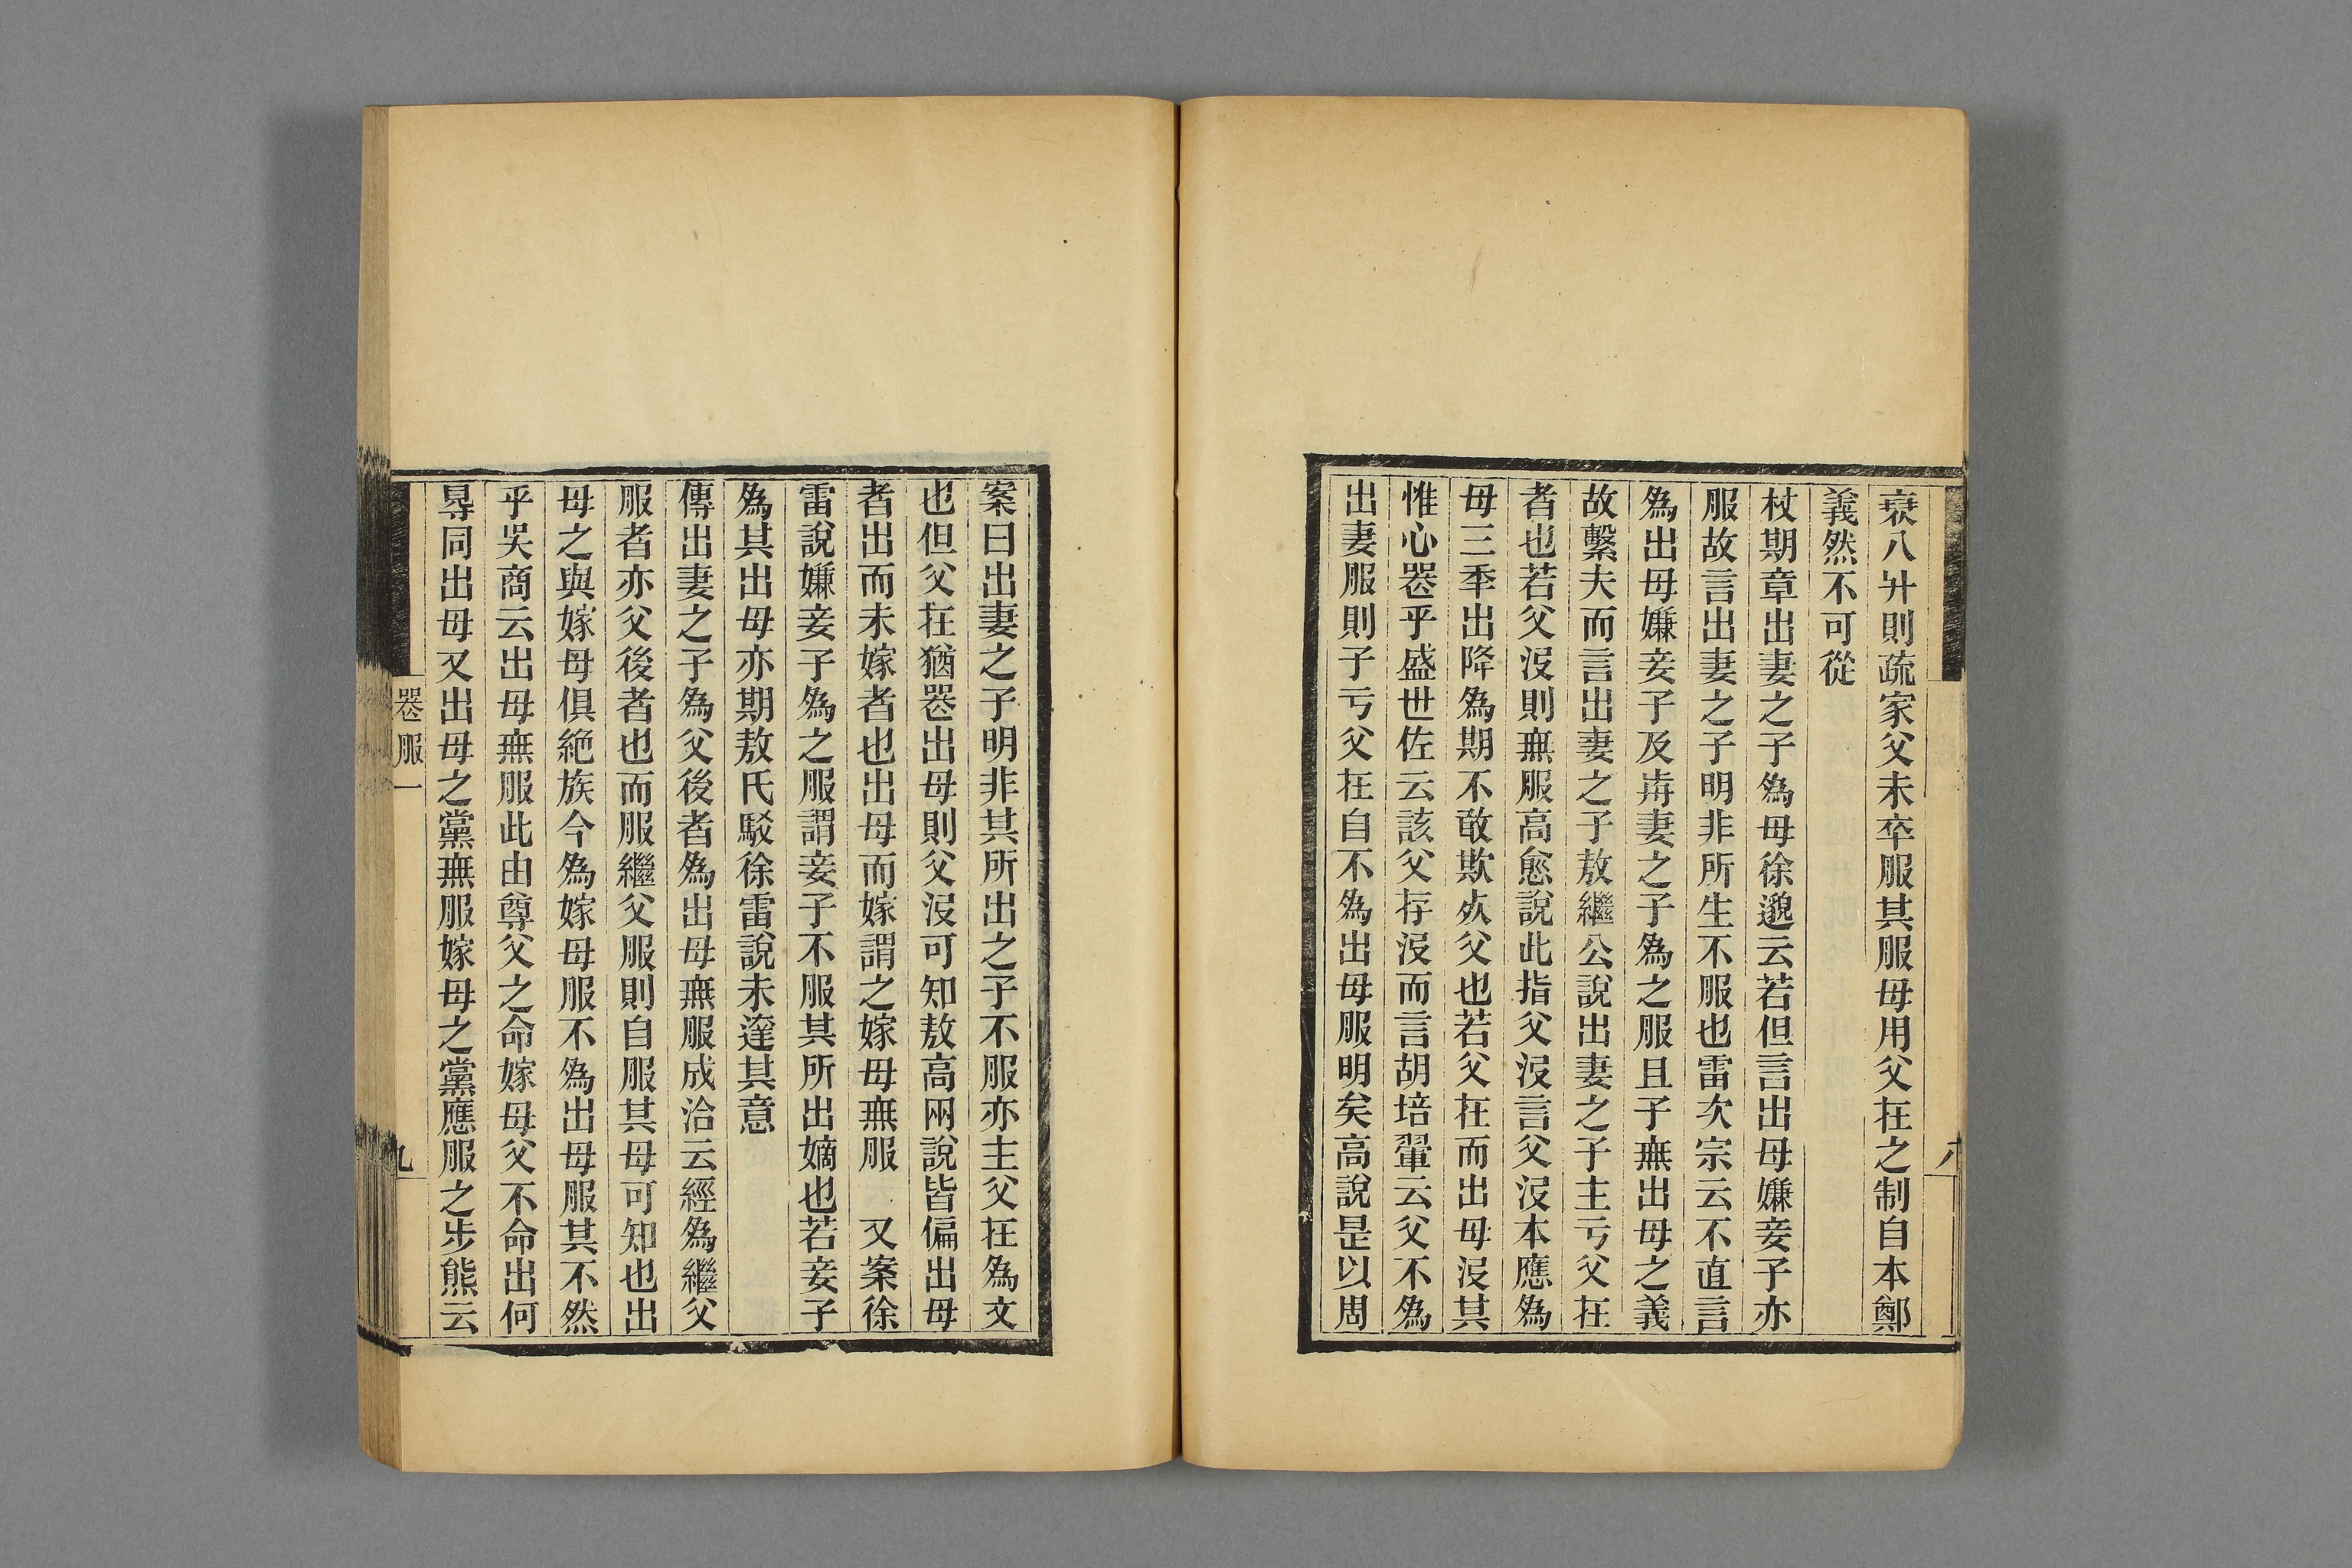 衰八升則疏家父未卒服其服母用父在之制自本鄭
義然不可從
杖期章出妻之子爲母徐邈云若但言出母嫌妾子亦
服故言出妻之子明非所生不服也雷次宗云不直言
爲出母嫌妾子及歬妻之子爲之服且子無出母之義
故繫夫而言出妻之子敖繼公說出妻之子主亏父在
者也若父沒則無服高愈說此指父沒言父沒本應爲
母三秊出降爲期不敢欺𣦸父也若父在而出母沒其
惟心喪乎盛世佐云該父存沒而言胡培翬云父不爲
出妻服則子亏父在自不爲出母服明矣高說是以周
八
案曰出妻之子明非其所出之子不服亦主父在爲文
也但父在猶喪出母則父沒可知敖高兩說皆偏出母
者出而未嫁者也出母而嫁謂之嫁母無服　又案徐
雷說嫌妾子爲之服謂妾子不服其所出嫡也若妾子
爲其出母亦期敖氏駁徐雷說未達其意
傳出妻之子爲父後者爲出母無服成洽云經爲繼父
服者亦父後者也而服繼父服則自服其母可知也出
母之與嫁母俱絶族今爲嫁母服不爲出母服其不然
乎吳商云出母無服此由尊父之命嫁母父不命出何
㝵同出母又出母之黨無服嫁母之黨應服之步熊云
喪服一
九